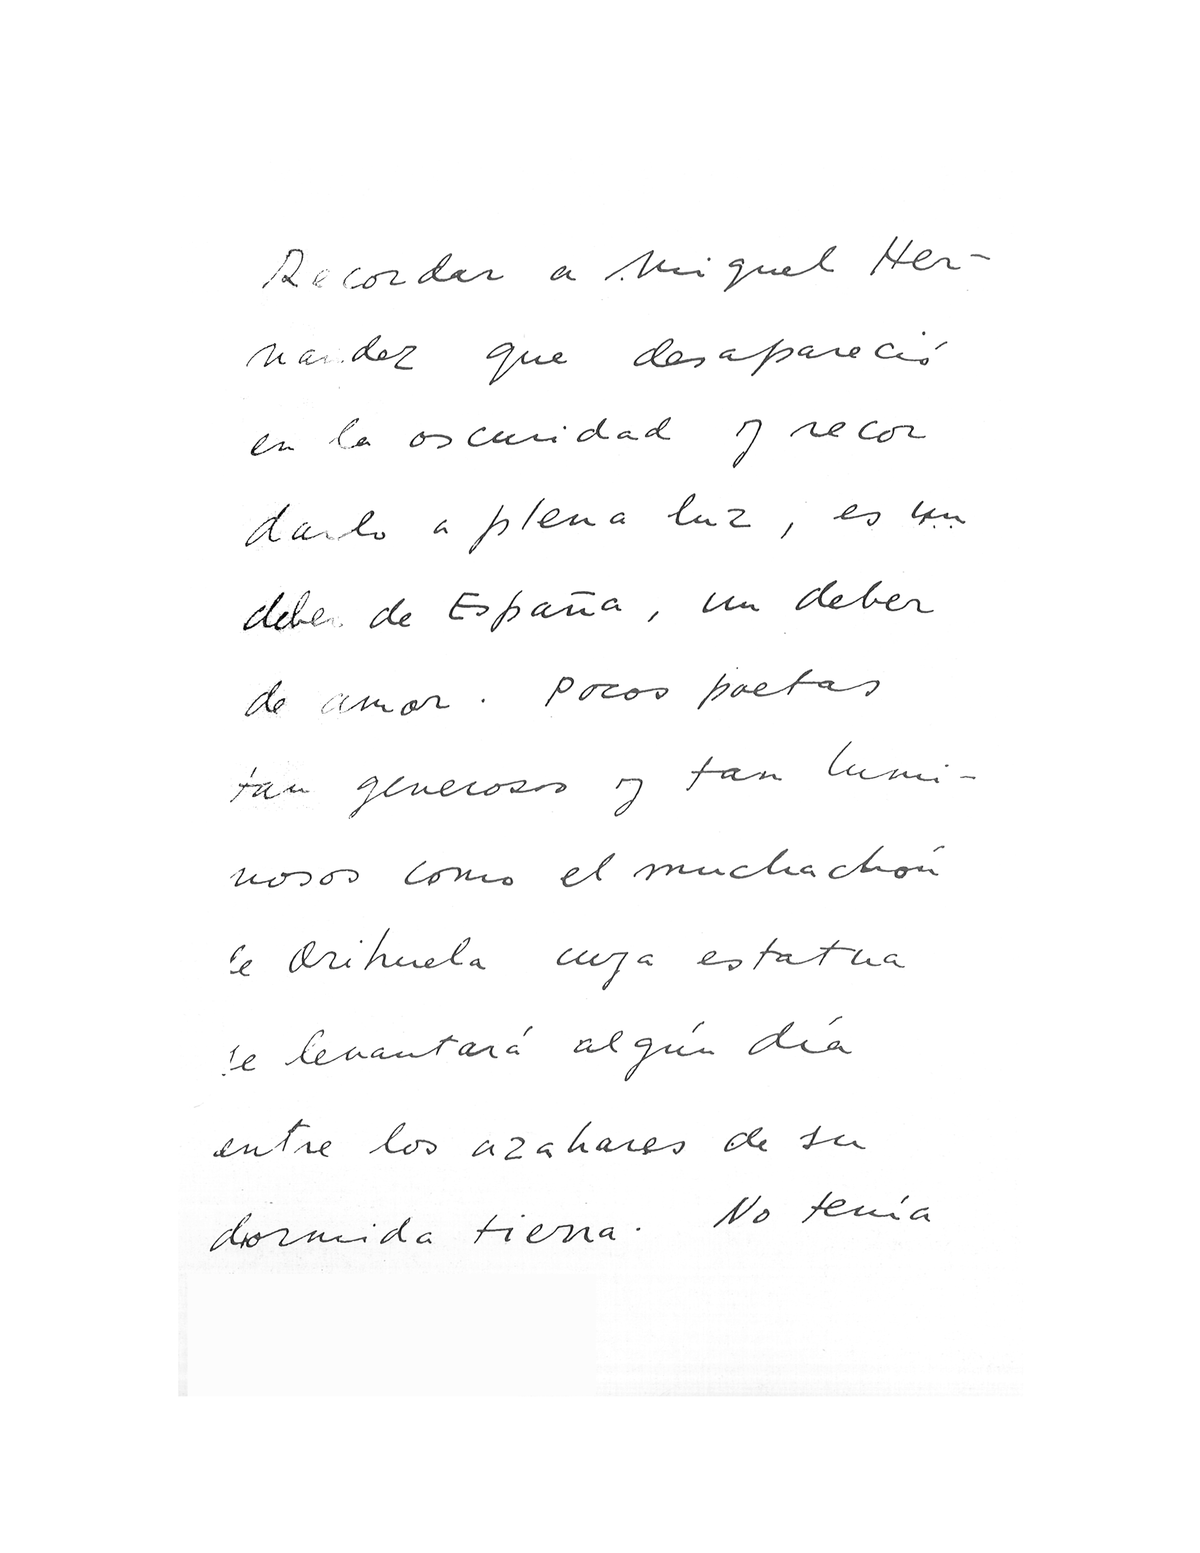 Recordar a Miguel Her-
nandez que desapareció
en la oscuridad y recor
darlo a plena luz, es un
deber de España, un deber
de amor. Pocos poetas
tan generosos y tan lumi-
nosos como el muchachón
de Orihuela cuya estatua
se levantará algún día
entre los azahares de su
dormida tierra. No tenía